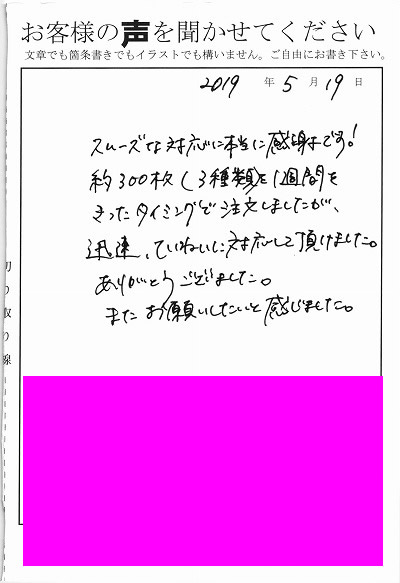 お客様の声を聞かせてください
文章でも箇条書きでもイラストでも構いません。ご自由にお書き下さい。
2019 年 5 月 19 日
スムーズな対応に本当に感謝です!
約300枚(3種類)を1週間を
きったタイミングで注文しましたが、
迅速、ていねいに対応して頂けました。
ありがとうございました。
またお願いしたいと感じました。
切り取り線